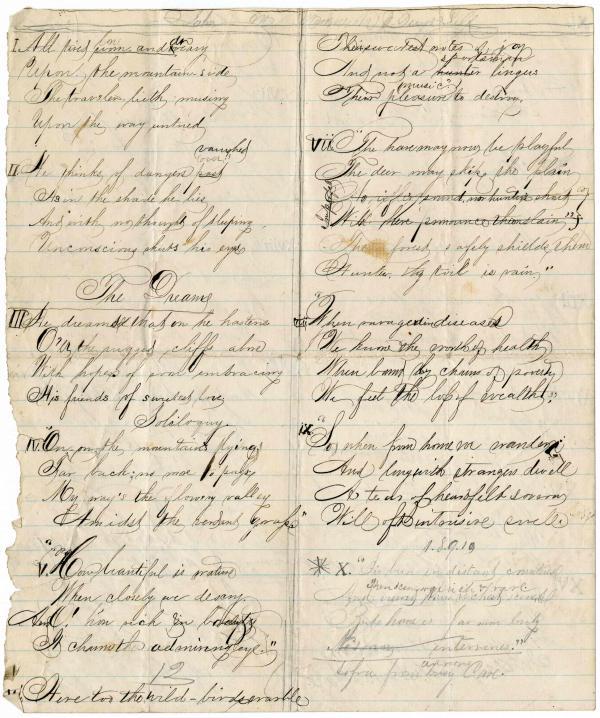 I. All tired limb and weary
Upon the mountain side
The traveler lieth musing
Upon the way untried
vanished
over
II He thinks of danger past
As in the shade he lies
And with no thought of sleeping
Unconscious shuts his eyes
The Dream
III He dreamed that on he hastens
O'er the rugged cliffs alone
With hopes of soon embracing
His friends of sweetest love
Soliloquy.
IV. "On, on the mountains flying
Far back; no more to
My way's the flowery valley
Amidst the verdant groves"
V. "How beautiful is nature
When closely we descry
And! how rich in beauty
It charmeth admiring eye."
12
VI. Here too the wild-birds warble
Their sweetest notes of joy
sportsman
And not a hunter lingers
music
Their pleasure to destroy.
VII "The hare may now be playful
The deer may skip the plain
No rifle's sound, nor hunter's shout
Will here pronounce them slain";
forest safely shields them
Hunter thy toil is vain."
VIII "When ravaged in disease
We know the worth of health
When bound by chains of poverty
We feel the loss of wealth."
IX "So when from home we wander
And long with strangers dwell
A tear of heartfelt sorrow
Will oft intrusive swell.
X. "In distant countries
rich & rare
And
home is
intervenes."
from Care.